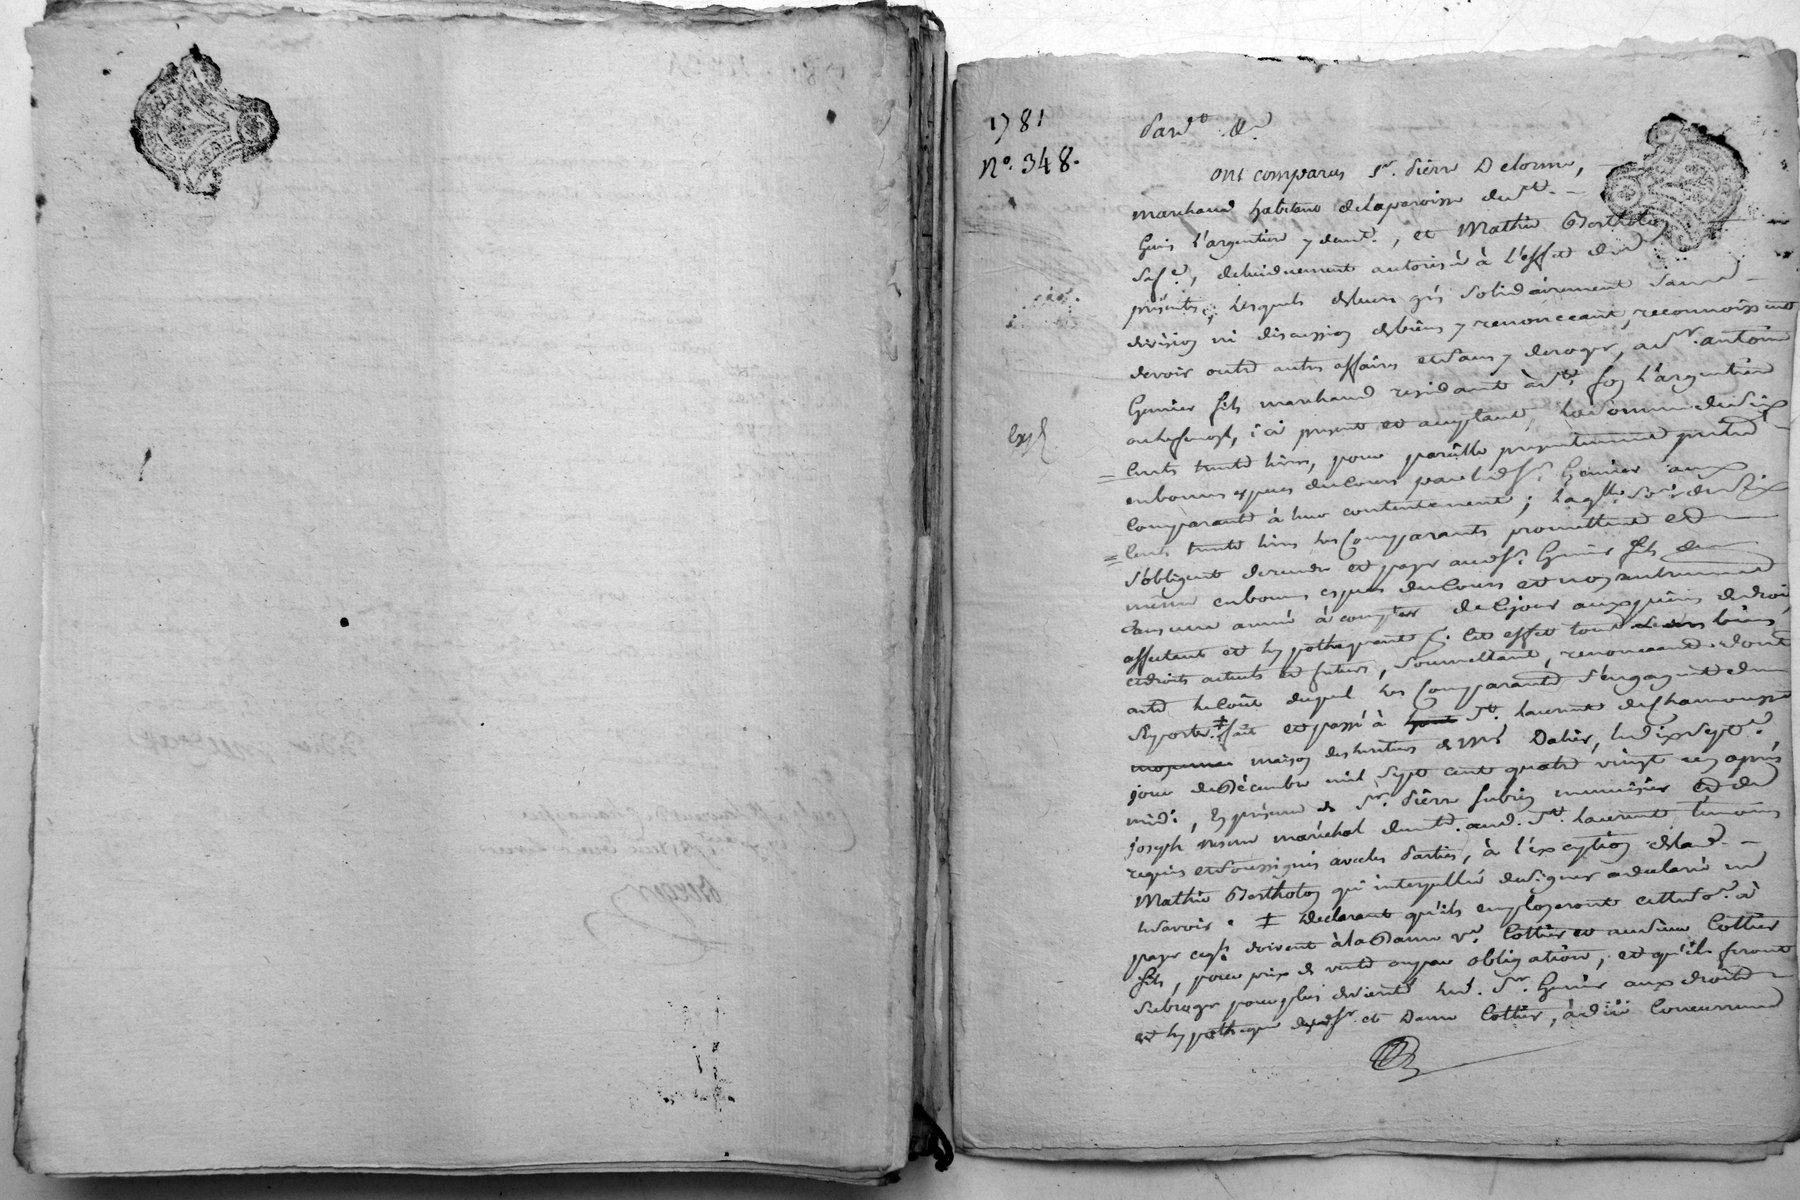 1781
N.° 348.
Pard.° &.ª
ont comparus S.r Pierre Delorme,
marchand habitant de la paroisse de St.
Genis l'argentiere y dem.t, et Mathie Bertholon
sa fe., de lui duement autorisée à l'effet des
présentes, lesquels de leurs gré solidairement sans
division ni discussion de biens y renonceant, reconnoissent
devoir outre autres affaires et sans y deroger, à S.r antoine
Grenier fils marchand residant à St. foy l'argentiere
ici present et acceptant, la somme de six
Cents trente livres, pour pareille presentement pretée
en bonnes especes du Cours par led. S.r Grenier aux
Comparants à leur contentement ; laq.lle so.e de six
Cents trente livres les Comparants promettent et
s'obligent de rendre et payer aud. S.r Grenier fils de
même en bonnes especes du Cours et non autrement
dans une année à compter de ce jour aux peines de droit,
affectant et hypothequant p.r cet effet tous leurs biens
et droits actuels et futurs, soumettant, renonceant dont
acte le Coût duquel les Comparants s'engagent de
supporter ‡ fait et passé à St. Laurent de Chamousset
maison des heritiers de Me Dalier, le dix sept.e
jour de Décembre mil sept cent quatre vingt un après
midi, En présence de S.r Pierre Subrin menuisier et de
joseph maréchal dem.t aud. St. Laurent temoins
requis et soussignés avec les Parties, à l'exception de lad.
Mathie Bertholon qui interpellée de signer a declaré ne
le savoir. ‡ Declarant qu'ils employeront cette so.e à
payer ce q. doivent à la Dame v.e Cottier et au sieur Cottier
fils, pour prix de vente ou par obligation, et qu'ils feront
subroger pour plus de sureté led. S.r Grenier aux droits
et hypotheque desd. S.r et Dame Cottier, à due Concurrence
Exp.